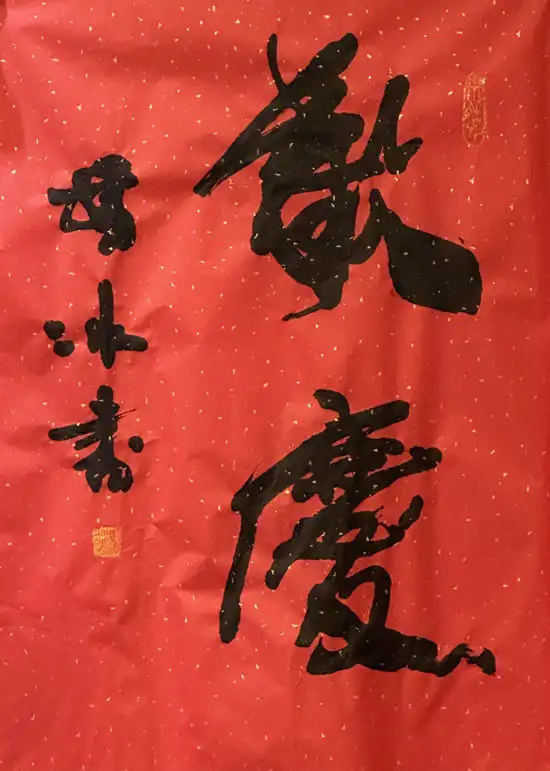 歡慶
冰書